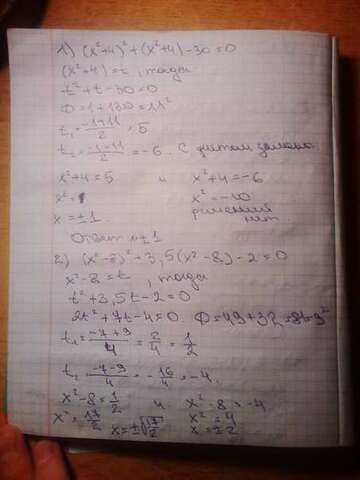 1) (x²+4)²+(x²+4)-30=0
(x²+4)=t, тогда
t²+t-30=0
D=1+120=11²
t₁=(-1+11)/2=5
t₂=(-1-11)/2=-6. С учётом замены
x²+4=5 и x²+4=-6
x²=1 x²=-10
x=±1. решений нет
Ответ: ±1
2) (x²-8)²+3,5(x²-8)-2=0
x²-8=t, тогда
t²+3,5t-2=0
2t²+7t-4=0 D=49+32=81=9²
t₁=(-7+9)/4=2/4=1/2
t₂=(-7-9)/4=-16/4=-4.
x²-8=1/2 и x²-8=-4
x²=17/2 x=±√17/2 x²=4
x=±2